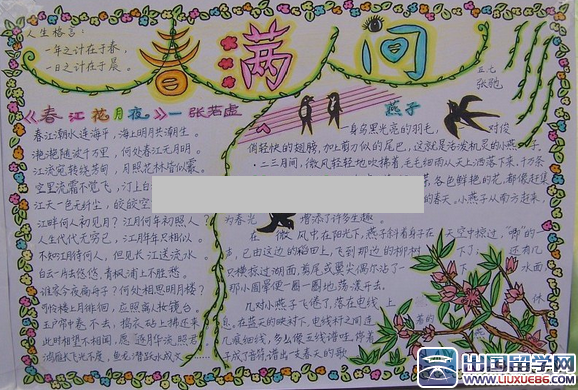 人生格言：
一年之计在于春，
一日之计在于晨。
春满人间
五七
张驰
《春江花月夜》—张若虚
春江潮水连海平，海上明月共潮生。
滟滟随波千万里，何处春江无月明。
江流宛转绕芳甸，月照花林皆似霰。
空里流霜不觉飞，汀上白
江天一色无纤尘，皎皎空
江畔何人初见月？江月何年初照人？
人生代代无穷已，江月年年只相似。
不知江月待何人，但见长江送流水。
白云一片去悠悠，青枫浦上不胜愁。
谁家今夜扁舟子？何处相思明月楼？
可怜楼上月徘徊，应照离人妆镜台。
玉户帘中卷不去，捣衣砧上拂还来
此时相望不相闻，愿逐月华流照君
鸿雁长飞光不度，鱼龙潜跃水成文
燕子
一身乌黑光亮的羽毛，一对俊
俏轻快的翅膀，加上剪刀似的尾巴，这就是活泼机灵的小燕子。
二三月间，微风轻轻地吹拂着，毛毛细雨从天上洒落下来，千万条
各色鲜艳的花，都像赶集
的春天，小燕子从南方赶来，
为春光 增添了许多生趣。
在微风中，在阳光下，燕子斜着身子在天空中掠过，“唧”的一
声，已由这边的稻田上，飞到那边的柳树下了；还有几
只横掠过湖面，剪尾或翼尖偶尔沾了一下水面，
那小圆晕便一圈一圈地荡漾开去。
几对小燕子飞倦了，落在电线上休
息，在蓝天的映衬下，电线杆之间连着的
几痕细线，多么像五线谱哇，停着的燕
子成了音符，谱出一支春天的歌
出国留学网
www.liuxue86.com